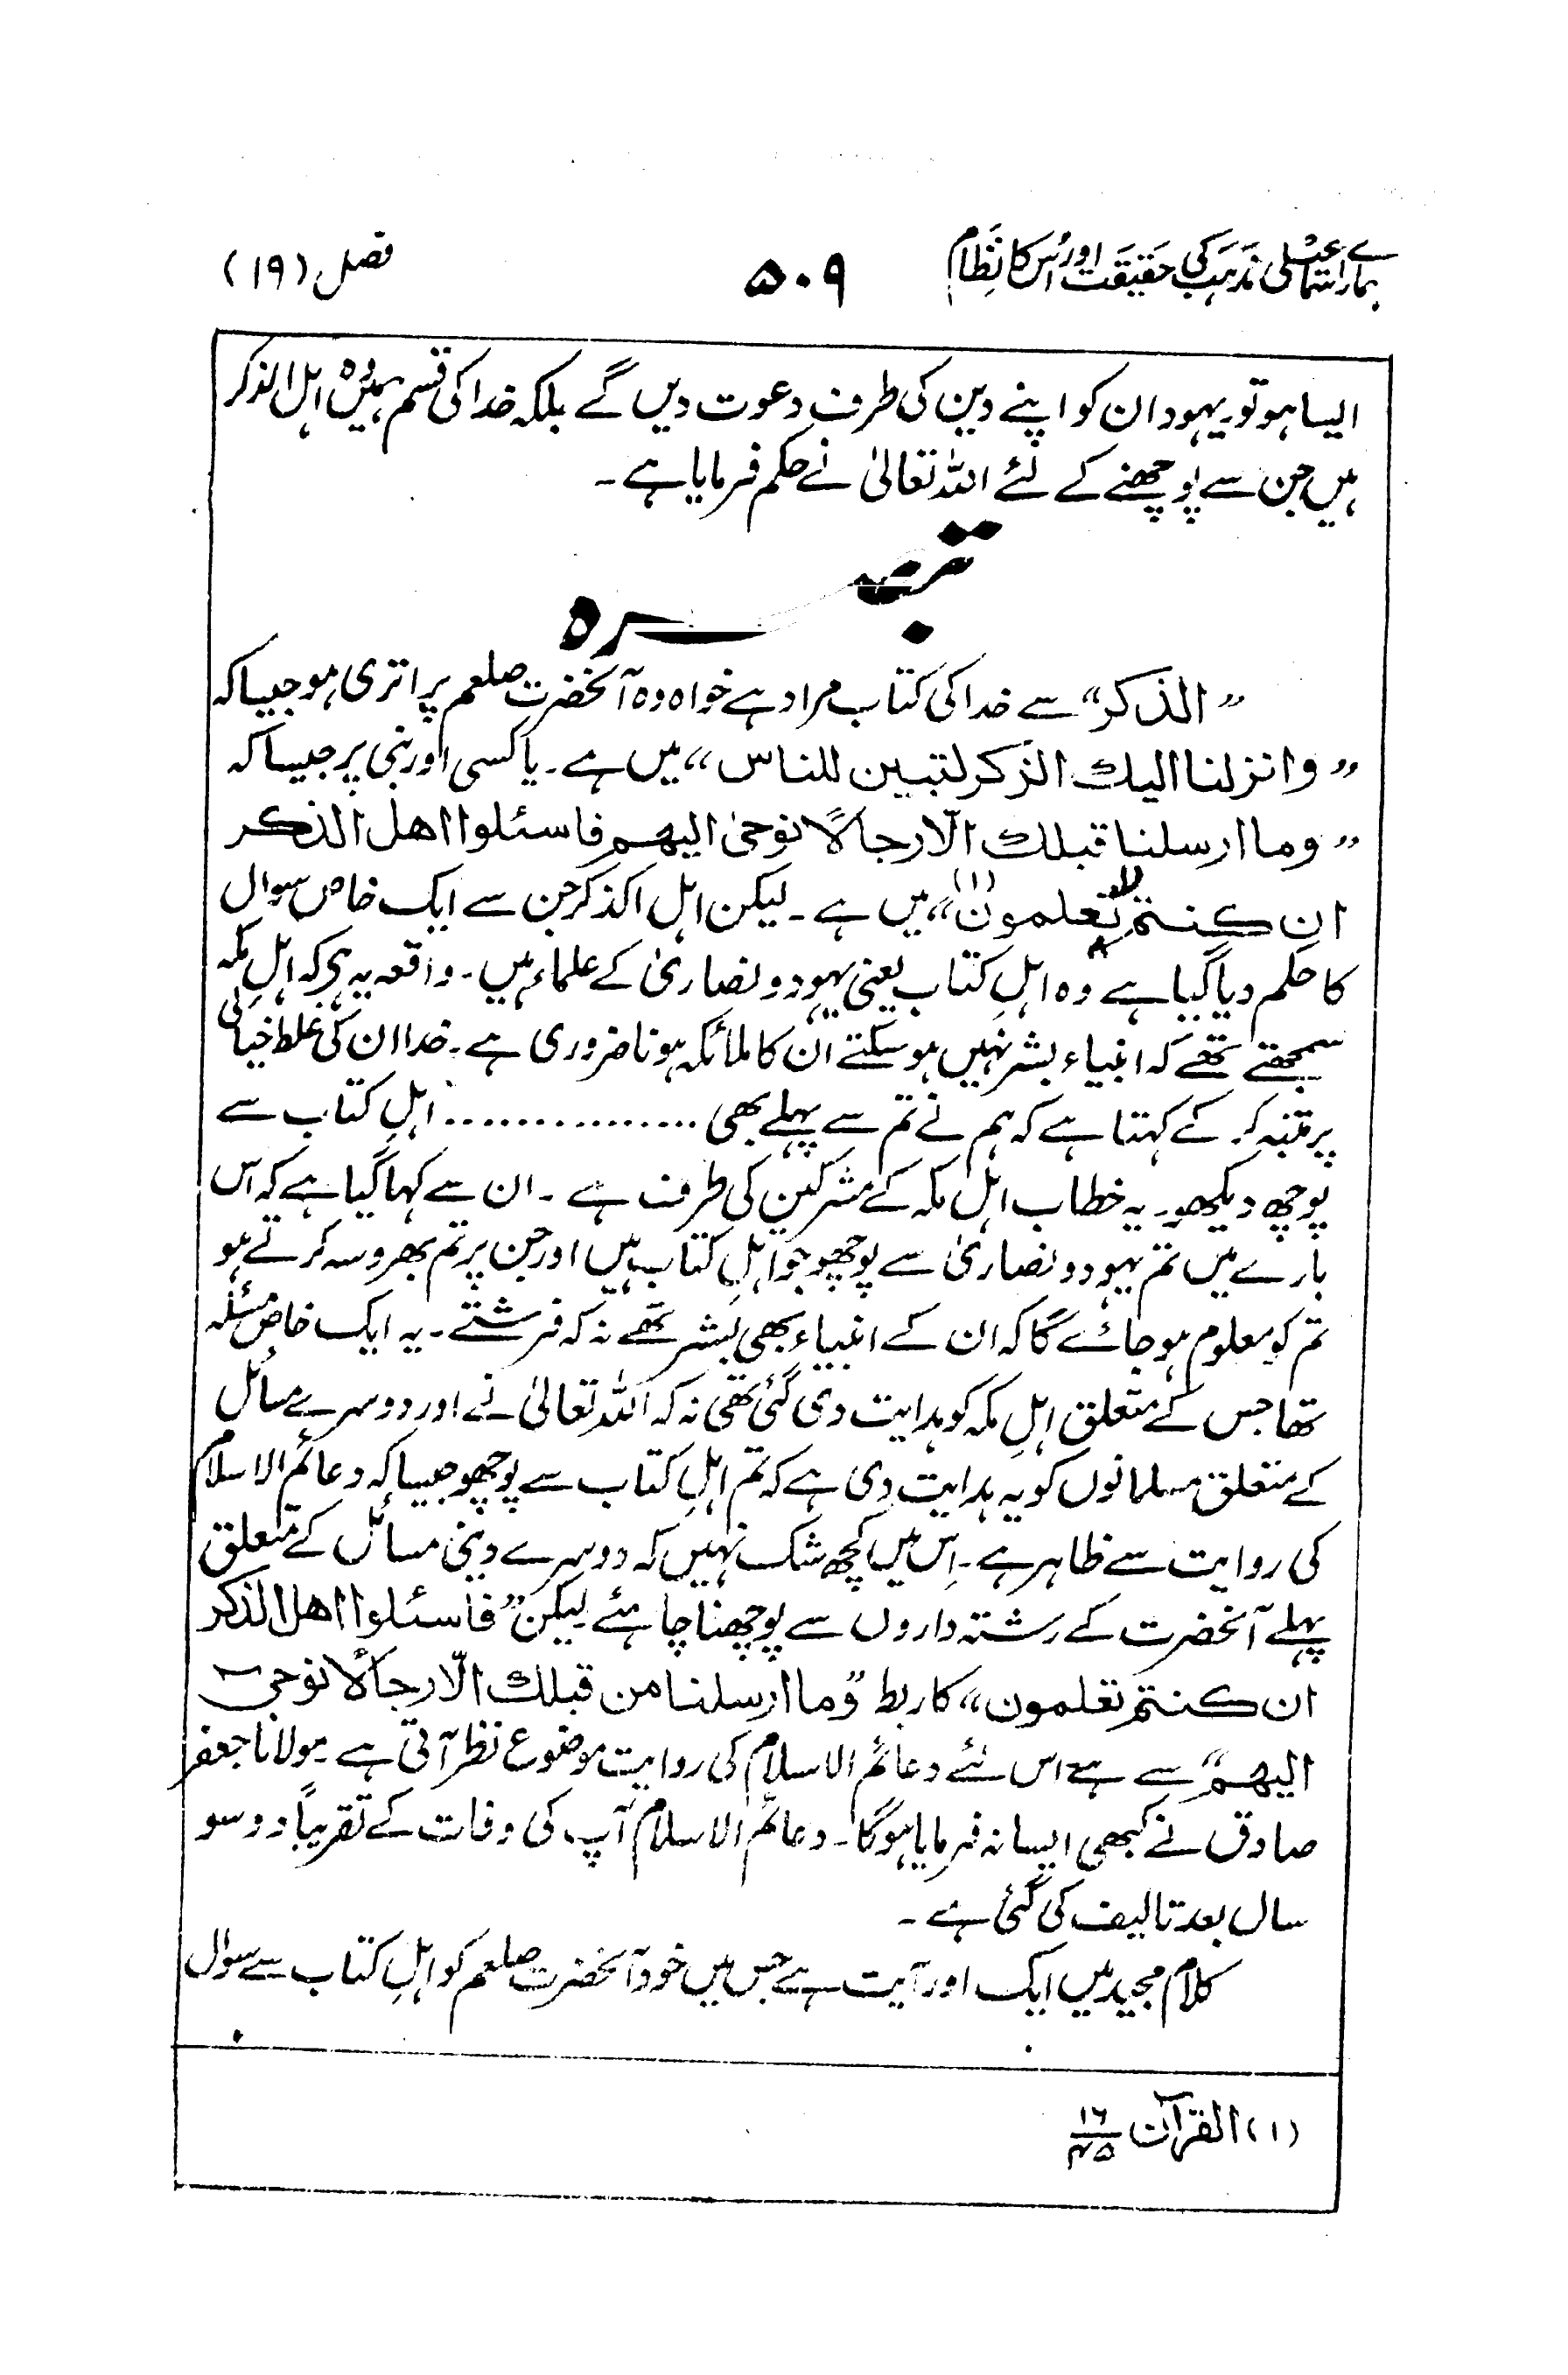 ہمارے اسماعیلی مذہب کی حقیقت اور اُس کا نِظام ۵۰۹ فصل (۱۹)
ایسا ہو تو یہود ان کو اپنے دین کی طرف دعوت دیں گے بلکہ خدا کی قسم ہمیں وہ اہل الذکر
ہیں جن سے پوچھنے کے لئے اللہ تعالیٰ نے حکم فرمایا ہے۔
تبصرہ
”الذکر“ سے خدا کی کتاب مراد ہے خواہ وہ آنحضرت صلعم پر اتری ہو جیسا کہ
”وانزلنا الیك الذکر لتبین للناس“ میں ہے۔ یا کسی اور نبی پر جیسا کہ
”وما ارسلنا قبلك الّا رجالًا نوحیٰ الیھم فاسئلوا اھل الذکر
ان کنتم لا تعلمون“(۱) میں ہے۔ لیکن اہل اکذکر جن سے ایک خاص سوال
کا حکم دیا گیا ہے وہ اہلِ کتاب یعنی یہود و نصاریٰ کے علماء ہیں۔ واقعہ یہ ہی کہ اہلِ مکہ
سمجھتے تھے کہ انبیاء بشر نہیں ہو سکتے ان کا ملائکہ ہونا ضروری ہے۔ خدا ان کی غلط خیالی
پر متنبہ کر کے کہتا ہے کہ ہم نے تم سے پہلے بھی ............... اہلِ کتاب سے
پوچھ دیکھو۔ یہ خطاب اہل مکہ کے مشرکین کی طرف ہے۔ ان سے کہا گیا ہے کہ اس
بارے میں تم یہود و نصاریٰ سے پوچھو جو اہلِ کتاب ہیں اور جن پر تم بھروسہ کرتے ہو
تم کو معلوم ہو جائے گا کہ ان کے انبیاء بھی بشر تھے نہ کہ فرشتے۔ یہ ایک خاص مسئلہ
تھا جس کے متعلق اہلِ مکہ کو ہدایت دی گئی تھی نہ کہ اللہ تعالیٰ نے اور دوسرے مسائل
کے متعلق مسلمانوں کو یہ ہدایت دی ہے کہ تم اہلِ کتاب سے پوچھو جیسا کہ دعائم الاسلام
کی روایت سے ظاہر ہے۔ اِس میں کچھ شک نہیں کہ دوسرے دینی مسائل کے متعلق
پہلے آنحضرت کے رشتہ داروں سے پوچھنا چاہئے لیکن ”فاسئلوا اھل الذکر
ان کنتم تعلمون“ کا ربط ”وما ارسلنا من قبلك الّا رجالًا نوحی
الیھم“ سے ہے اس لئے دعائم الاسلام کی روایت موضوع نظر آتی ہے۔ مولانا جعفر
صادق نے کبھی ایسا نہ فرمایا ہوگا۔ دعائم الاسلام آپ کی وفات کے تقریباً دو سو
سال بعد تالیف کی گئی ہے۔
کلام مجید میں ایک اور آیت ہے جس میں خود آنحضرت صلعم کو اہلِ کتاب سے سوال
(۱) القرآن ۱۶/۴۵